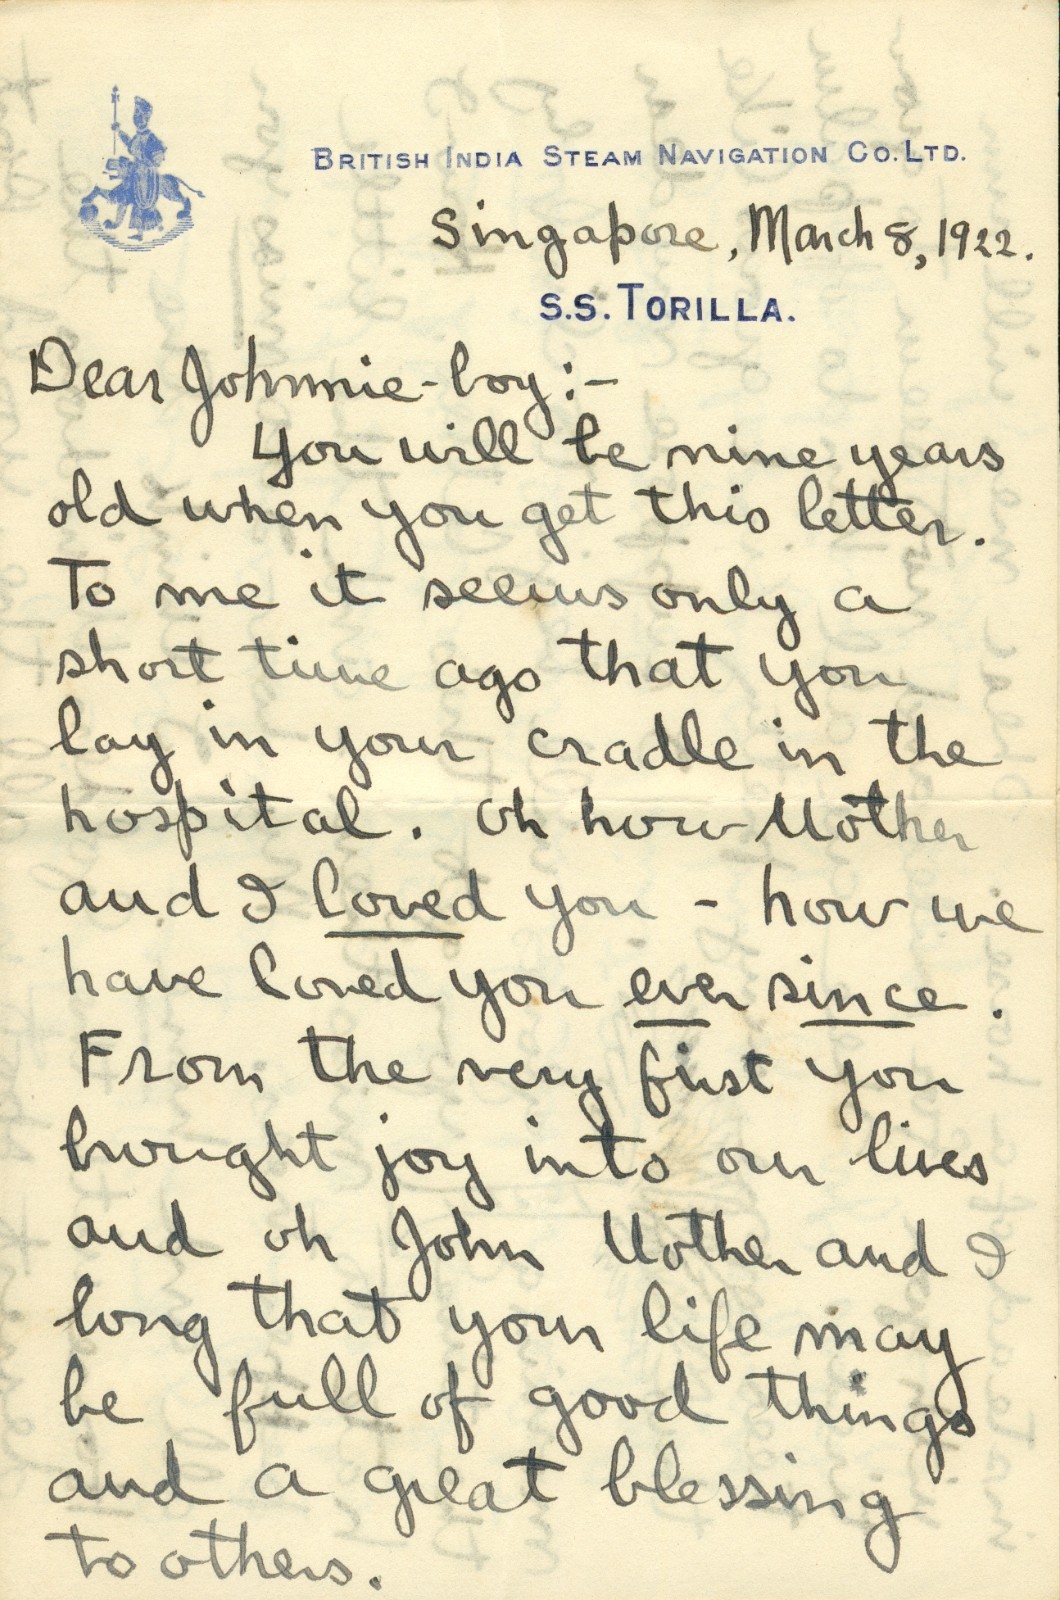 BRITISH INDIA STEAM NAVIGATION CO. LTD.
Singapore, March 8, 1922.
S.S. TORILLA.
Dear Johnnie-boy:-
You will be nine years
old when you get this letter.
To me it seems only a
short time ago that you
lay in your cradle in the
hospital. Oh how Mother
and I loved you - how we
have loved you ever since.
From the very first you
brought joy into our lives
and oh John Mother and I
long that your life may
be full of good things
and a great blessing
to others.